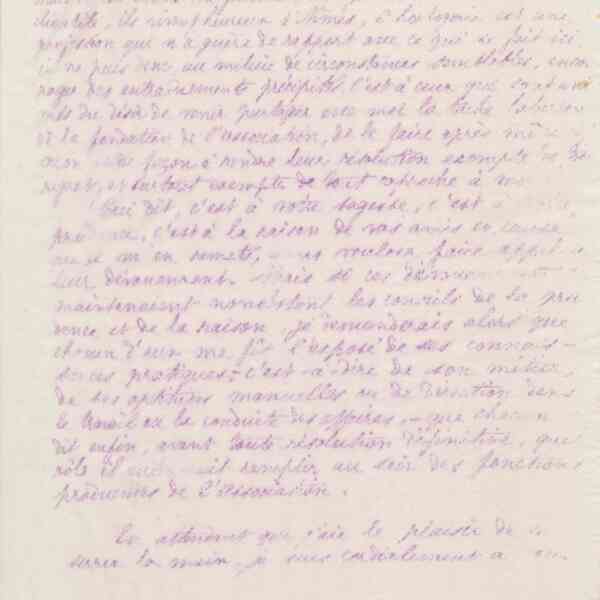 ils
profession qui n'a guère de rapport avec ce qui se fait ici
je ne puis donc au milieu de circonstances semblables, encou
rager des entraînements précipités. C'est à ceux qui
du désir de venir partager avec moi la tâche laborieuse
de la fondation de l'association, de le faire après mûre
façon à rendre leur résolution exempte de
et surtout exempte de tout reproche à
Ceci dit, c'est à votre sagesse, c'est à votre
prudence, c'est à la raison de vos amis en cause
que je m'en remets, vouloir faire appel à
leur dévouement. Mais si ces
maintenaient nonobstant les conseils de la pru
dence et de la raison, je demanderais alors que
chacun d'eux me fît l'exposé de ses connais-
sances pratiques, c'est-à-dire de son métier,
de ses aptitudes manuelles ou de direction dans
le travail ou la conduite des affaires, - que chacun
dit enfin, avant toute résolution définitive, quel
rôle il remplir au sein des fonctions
productives de l'association.
En attendant que j'aie le plaisir de
serrer la main, je suis cordialement à